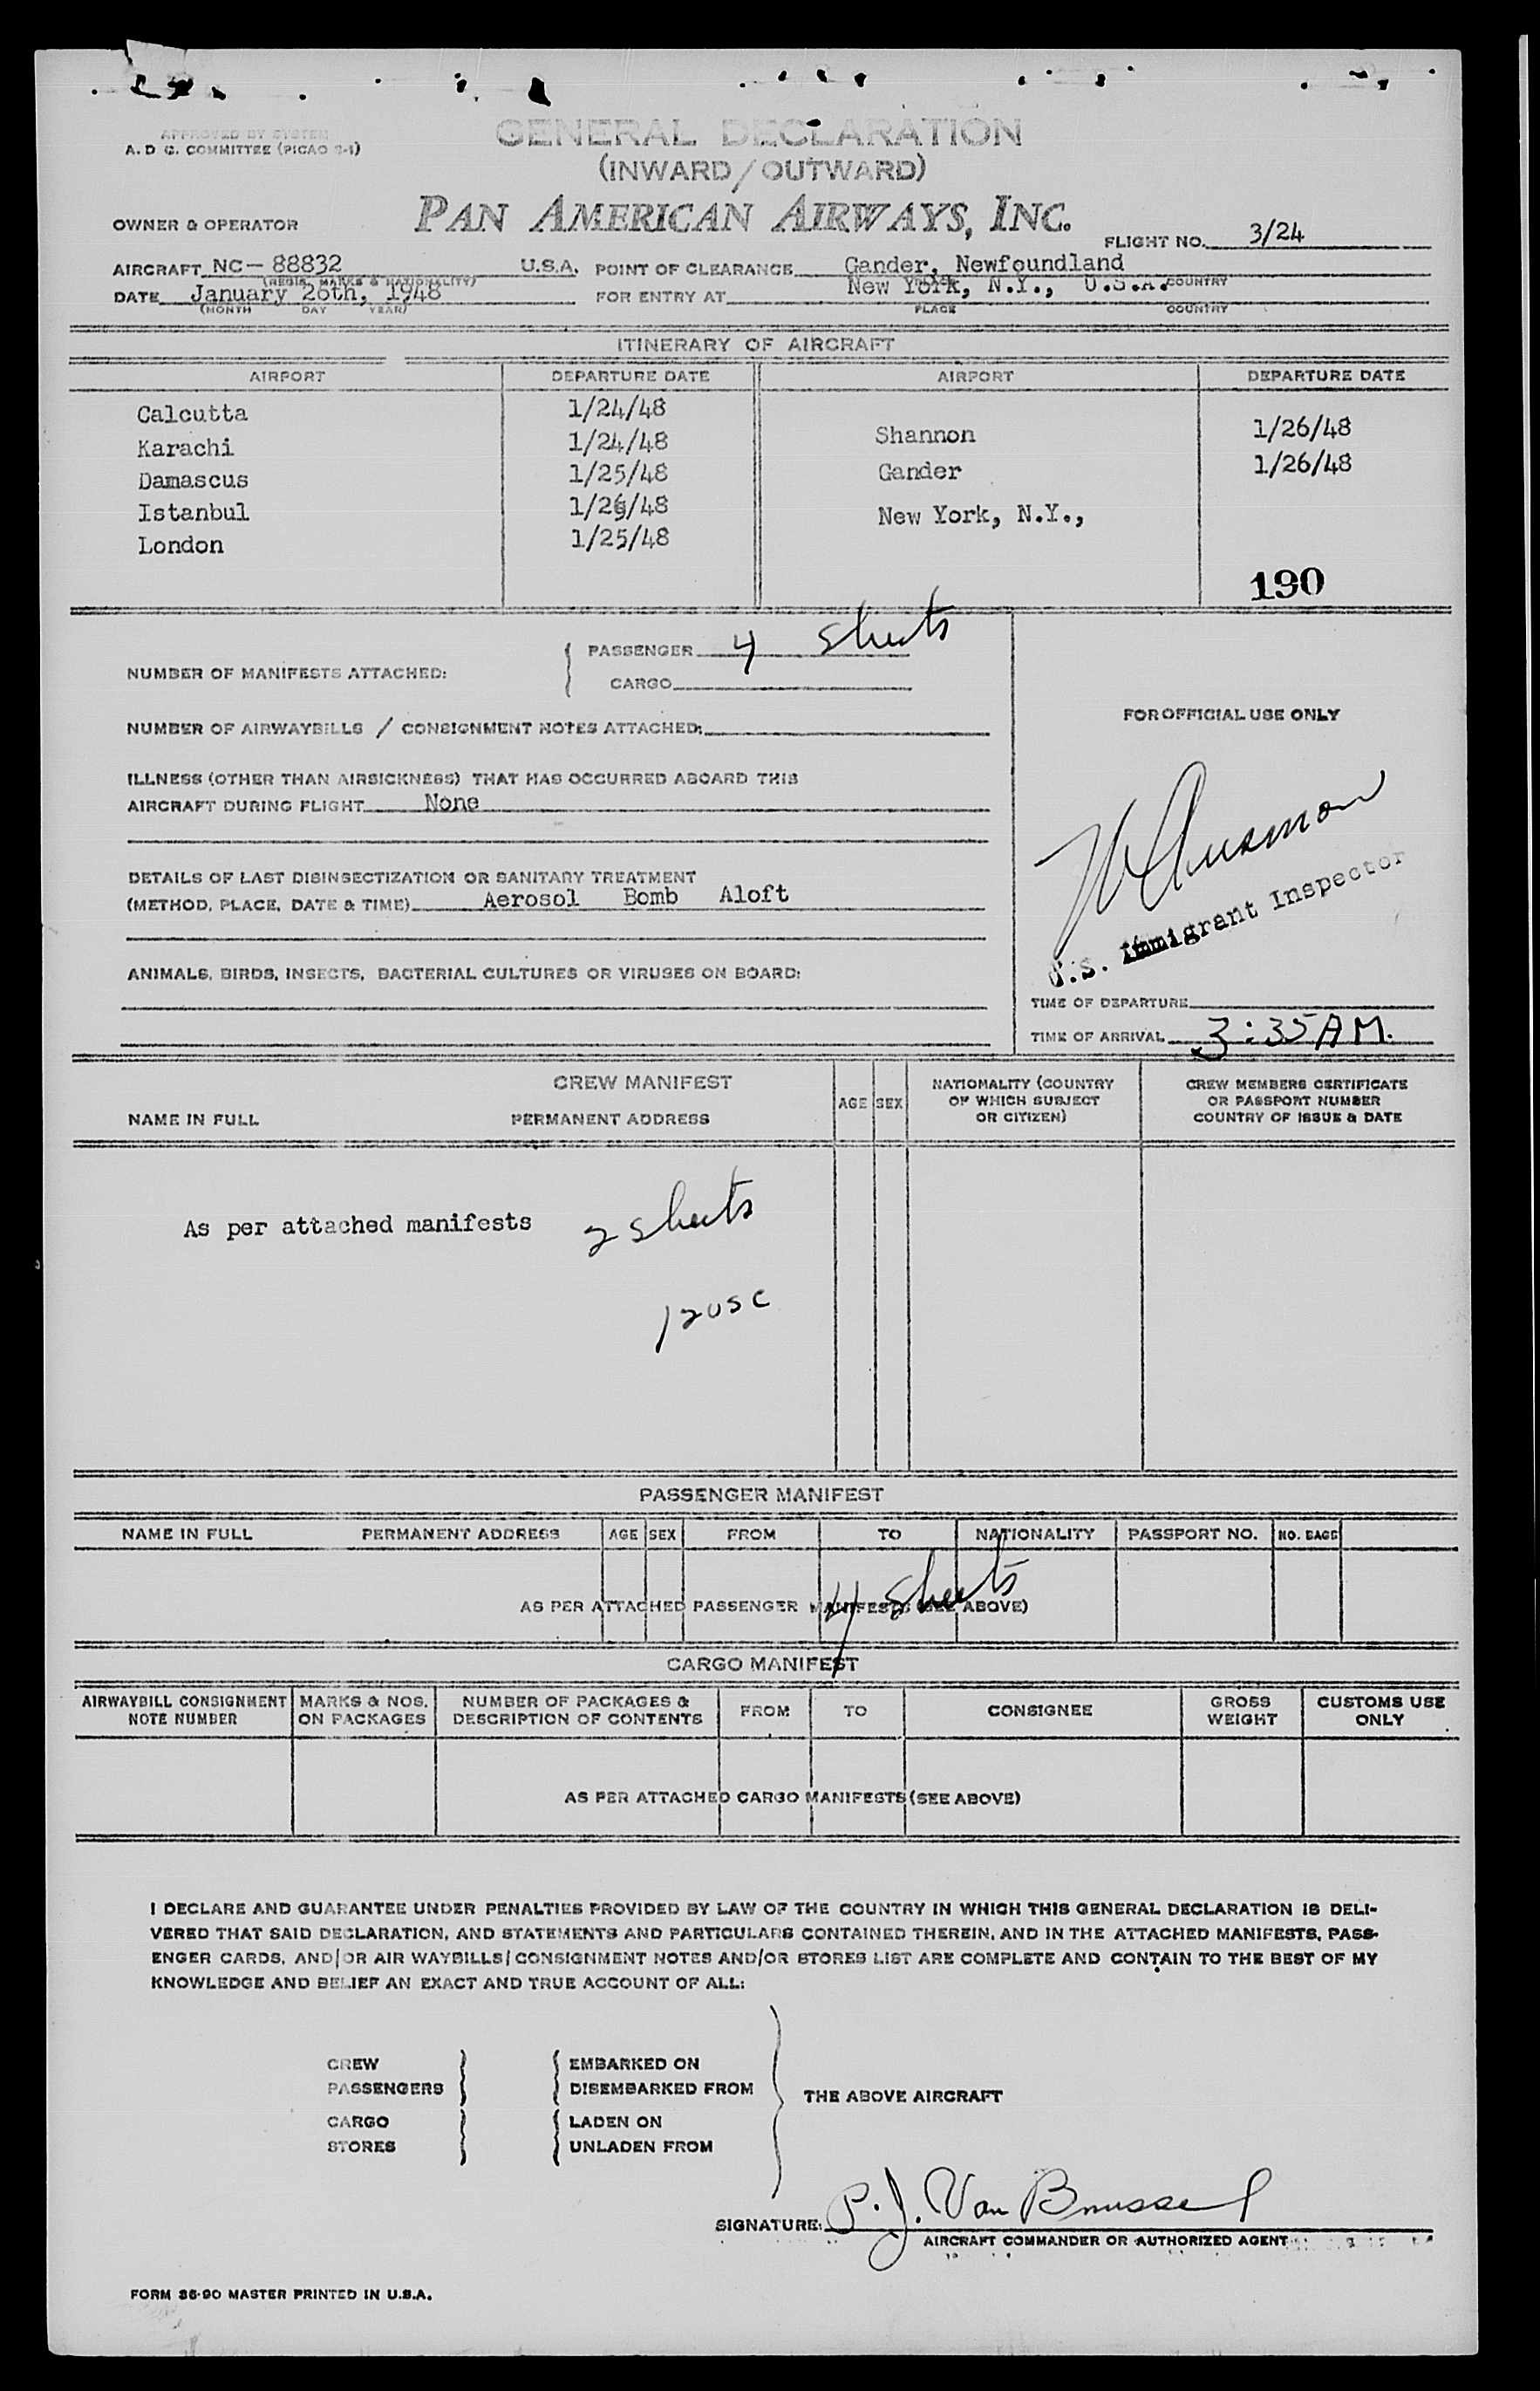 APPROVED BY SYSTEM
A. D G. COMMITTEE (PICAO 2-1)
GENERAL DECLARATION
(INWARD/OUTWARD)
PAN AMERICAN AIRWAYS, INC.
OWNER & OPERATOR
FLIGHT NO. 3/24
AIRCRAFT NC- 88832 U.S.A. POINT OF CLEARANCE Gander, Newfoundland
(REGIS. MARKS & NATIONALITY) COUNTRY
DATE January 26th, 1948 FOR ENTRY AT New York, N.Y., U.S.A.
(MONTH DAY YEAR) PLACE COUNTRY
ITINERARY OF AIRCRAFT
AIRPORT DEPARTURE DATE AIRPORT DEPARTURE DATE
Calcutta 1/24/48
Karachi 1/24/48 Shannon 1/26/48
Damascus 1/25/48 Gander 1/26/48
Istanbul 1/26/48 New York, N.Y.,
London 1/25/48
190
NUMBER OF MANIFESTS ATTACHED: PASSENGER 4 sheets
CARGO
FOR OFFICIAL USE ONLY
NUMBER OF AIRWAYBILLS / CONSIGNMENT NOTES ATTACHED:
ILLNESS (OTHER THAN AIRSICKNESS) THAT HAS OCCURRED ABOARD THIS
AIRCRAFT DURING FLIGHT None
DETAILS OF LAST DISINSECTIZATION OR SANITARY TREATMENT
(METHOD, PLACE, DATE & TIME) Aerosol Bomb Aloft
U.S. Immigrant Inspector
ANIMALS, BIRDS, INSECTS, BACTERIAL CULTURES OR VIRUSES ON BOARD:
TIME OF DEPARTURE
TIME OF ARRIVAL 3:35 AM.
CREW MANIFEST
NAME IN FULL PERMANENT ADDRESS AGE SEX NATIONALITY (COUNTRY OF WHICH SUBJECT OR CITIZEN) CREW MEMBERS CERTIFICATE OR PASSPORT NUMBER COUNTRY OF ISSUE & DATE
As per attached manifests 2 sheets
12 USC
PASSENGER MANIFEST
NAME IN FULL PERMANENT ADDRESS AGE SEX FROM TO NATIONALITY PASSPORT NO. NO. BAGS
AS PER ATTACHED PASSENGER MANIFESTS (SEE ABOVE) 4 sheets
CARGO MANIFEST
AIRWAYBILL CONSIGNMENT NOTE NUMBER MARKS & NOS. ON PACKAGES NUMBER OF PACKAGES & DESCRIPTION OF CONTENTS FROM TO CONSIGNEE GROSS WEIGHT CUSTOMS USE ONLY
AS PER ATTACHED CARGO MANIFESTS (SEE ABOVE)
I DECLARE AND GUARANTEE UNDER PENALTIES PROVIDED BY LAW OF THE COUNTRY IN WHICH THIS GENERAL DECLARATION IS DELI-
VERED THAT SAID DECLARATION, AND STATEMENTS AND PARTICULARS CONTAINED THEREIN, AND IN THE ATTACHED MANIFESTS, PASS-
ENGER CARDS, AND/OR AIR WAYBILLS/CONSIGNMENT NOTES AND/OR STORES LIST ARE COMPLETE AND CONTAIN TO THE BEST OF MY
KNOWLEDGE AND BELIEF AN EXACT AND TRUE ACCOUNT OF ALL:
CREW EMBARKED ON
PASSENGERS DISEMBARKED FROM THE ABOVE AIRCRAFT
CARGO LADEN ON
STORES UNLADEN FROM
SIGNATURE: P. J. Van Brussel
AIRCRAFT COMMANDER OR AUTHORIZED AGENT
FORM 36-90 MASTER PRINTED IN U.S.A.